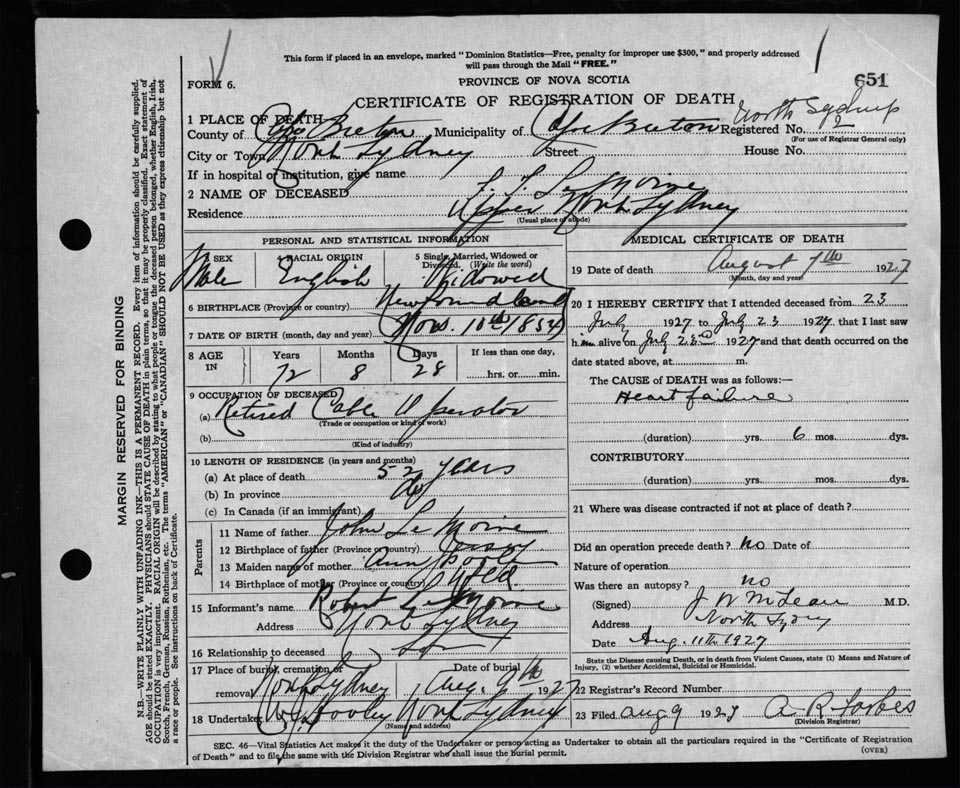 This form if placed in an envelope, marked "Dominion Statistics—Free, penalty for improper use $300," and properly addressed
will pass through the Mail "FREE."
FORM 6.
PROVINCE OF NOVA SCOTIA
651
CERTIFICATE OF REGISTRATION OF DEATH
North Sydney
1 PLACE OF DEATH
County of Cape Breton Municipality of Cape Breton Registered No. 2
(For use of Registrar General only)
City or Town North Sydney Street House No.
If in hospital or institution, give name
2 NAME OF DECEASED Le Moine
Residence Upper North Sydney
(Usual place of abode)
PERSONAL AND STATISTICAL INFORMATION
3 SEX 4 RACIAL ORIGIN 5 Single, Married, Widowed or
Divorced. (Write the word)
Male English Widowed
6 BIRTHPLACE (Province or country) Newfoundland
7 DATE OF BIRTH (month, day and year) Nov. 10th 1854
8 AGE IN Years Months Days If less than one day,
72 8 28 hrs. or min.
9 OCCUPATION OF DECEASED
(a) Retired Cable Operator
(Trade or occupation or kind of work)
(b)
(Kind of industry)
10 LENGTH OF RESIDENCE (in years and months)
(a) At place of death 52 years
(b) In province do
(c) In Canada (if an immigrant)
Parents
11 Name of father John Le Moine
12 Birthplace of father (Province or country)
13 Maiden name of mother Ann
14 Birthplace of mother (Province or country) Nfld
15 Informant's name Robert Le Moine
Address North Sydney
16 Relationship to deceased Son
17 Place of burial, cremation or removal North Sydney Date of burial Aug. 9th 1927
18 Undertaker Dooley North Sydney
(Name and address)
MEDICAL CERTIFICATE OF DEATH
19 Date of death August 7th 1927
(Month, day and year)
20 I HEREBY CERTIFY that I attended deceased from 23
July 1927 to July 23 1927 that I last saw
him alive on July 23rd 1927 and that death occurred on the
date stated above, at m.
The CAUSE of DEATH was as follows:—
Heart failure
(duration) yrs. 6 mos. dys.
CONTRIBUTORY
(duration) yrs. mos. dys.
21 Where was disease contracted if not at place of death?
Did an operation precede death? No Date of
Nature of operation
Was there an autopsy? no
(Signed) J W McLean M.D.
Address North Sydney
Date Aug. 11th 1927
State the Disease causing Death, or in death from Violent Causes, state (1) Means and Nature of
Injury, (2) whether Accidental, Suicidal or Homicidal.
22 Registrar's Record Number
23 Filed Aug 9 1927 A. R. Forbes
(Division Registrar)
SEC. 46—Vital Statistics Act makes it the duty of the Undertaker or person acting as Undertaker to obtain all the particulars required in the "Certificate of Registration
of Death" and to file the same with the Division Registrar who shall issue the burial permit. (OVER)
MARGIN RESERVED FOR BINDING
N.B.—WRITE PLAINLY WITH UNFADING INK—THIS IS A PERMANENT RECORD. Every item of information should be carefully supplied.
AGE should be stated EXACTLY. PHYSICIANS should STATE CAUSE OF DEATH in plain terms, so that it may be properly classified. Exact statement of
OCCUPATION is very important. RACIAL ORIGIN will be described by stating to what people or tongue the deceased person belonged, whether English, Irish,
Scotch, French, German, Russian, Ruthenian, etc. The terms "AMERICAN" or "CANADIAN" SHOULD NOT BE USED as they express citizenship but not
a race or people. See instructions on back of Certificate.